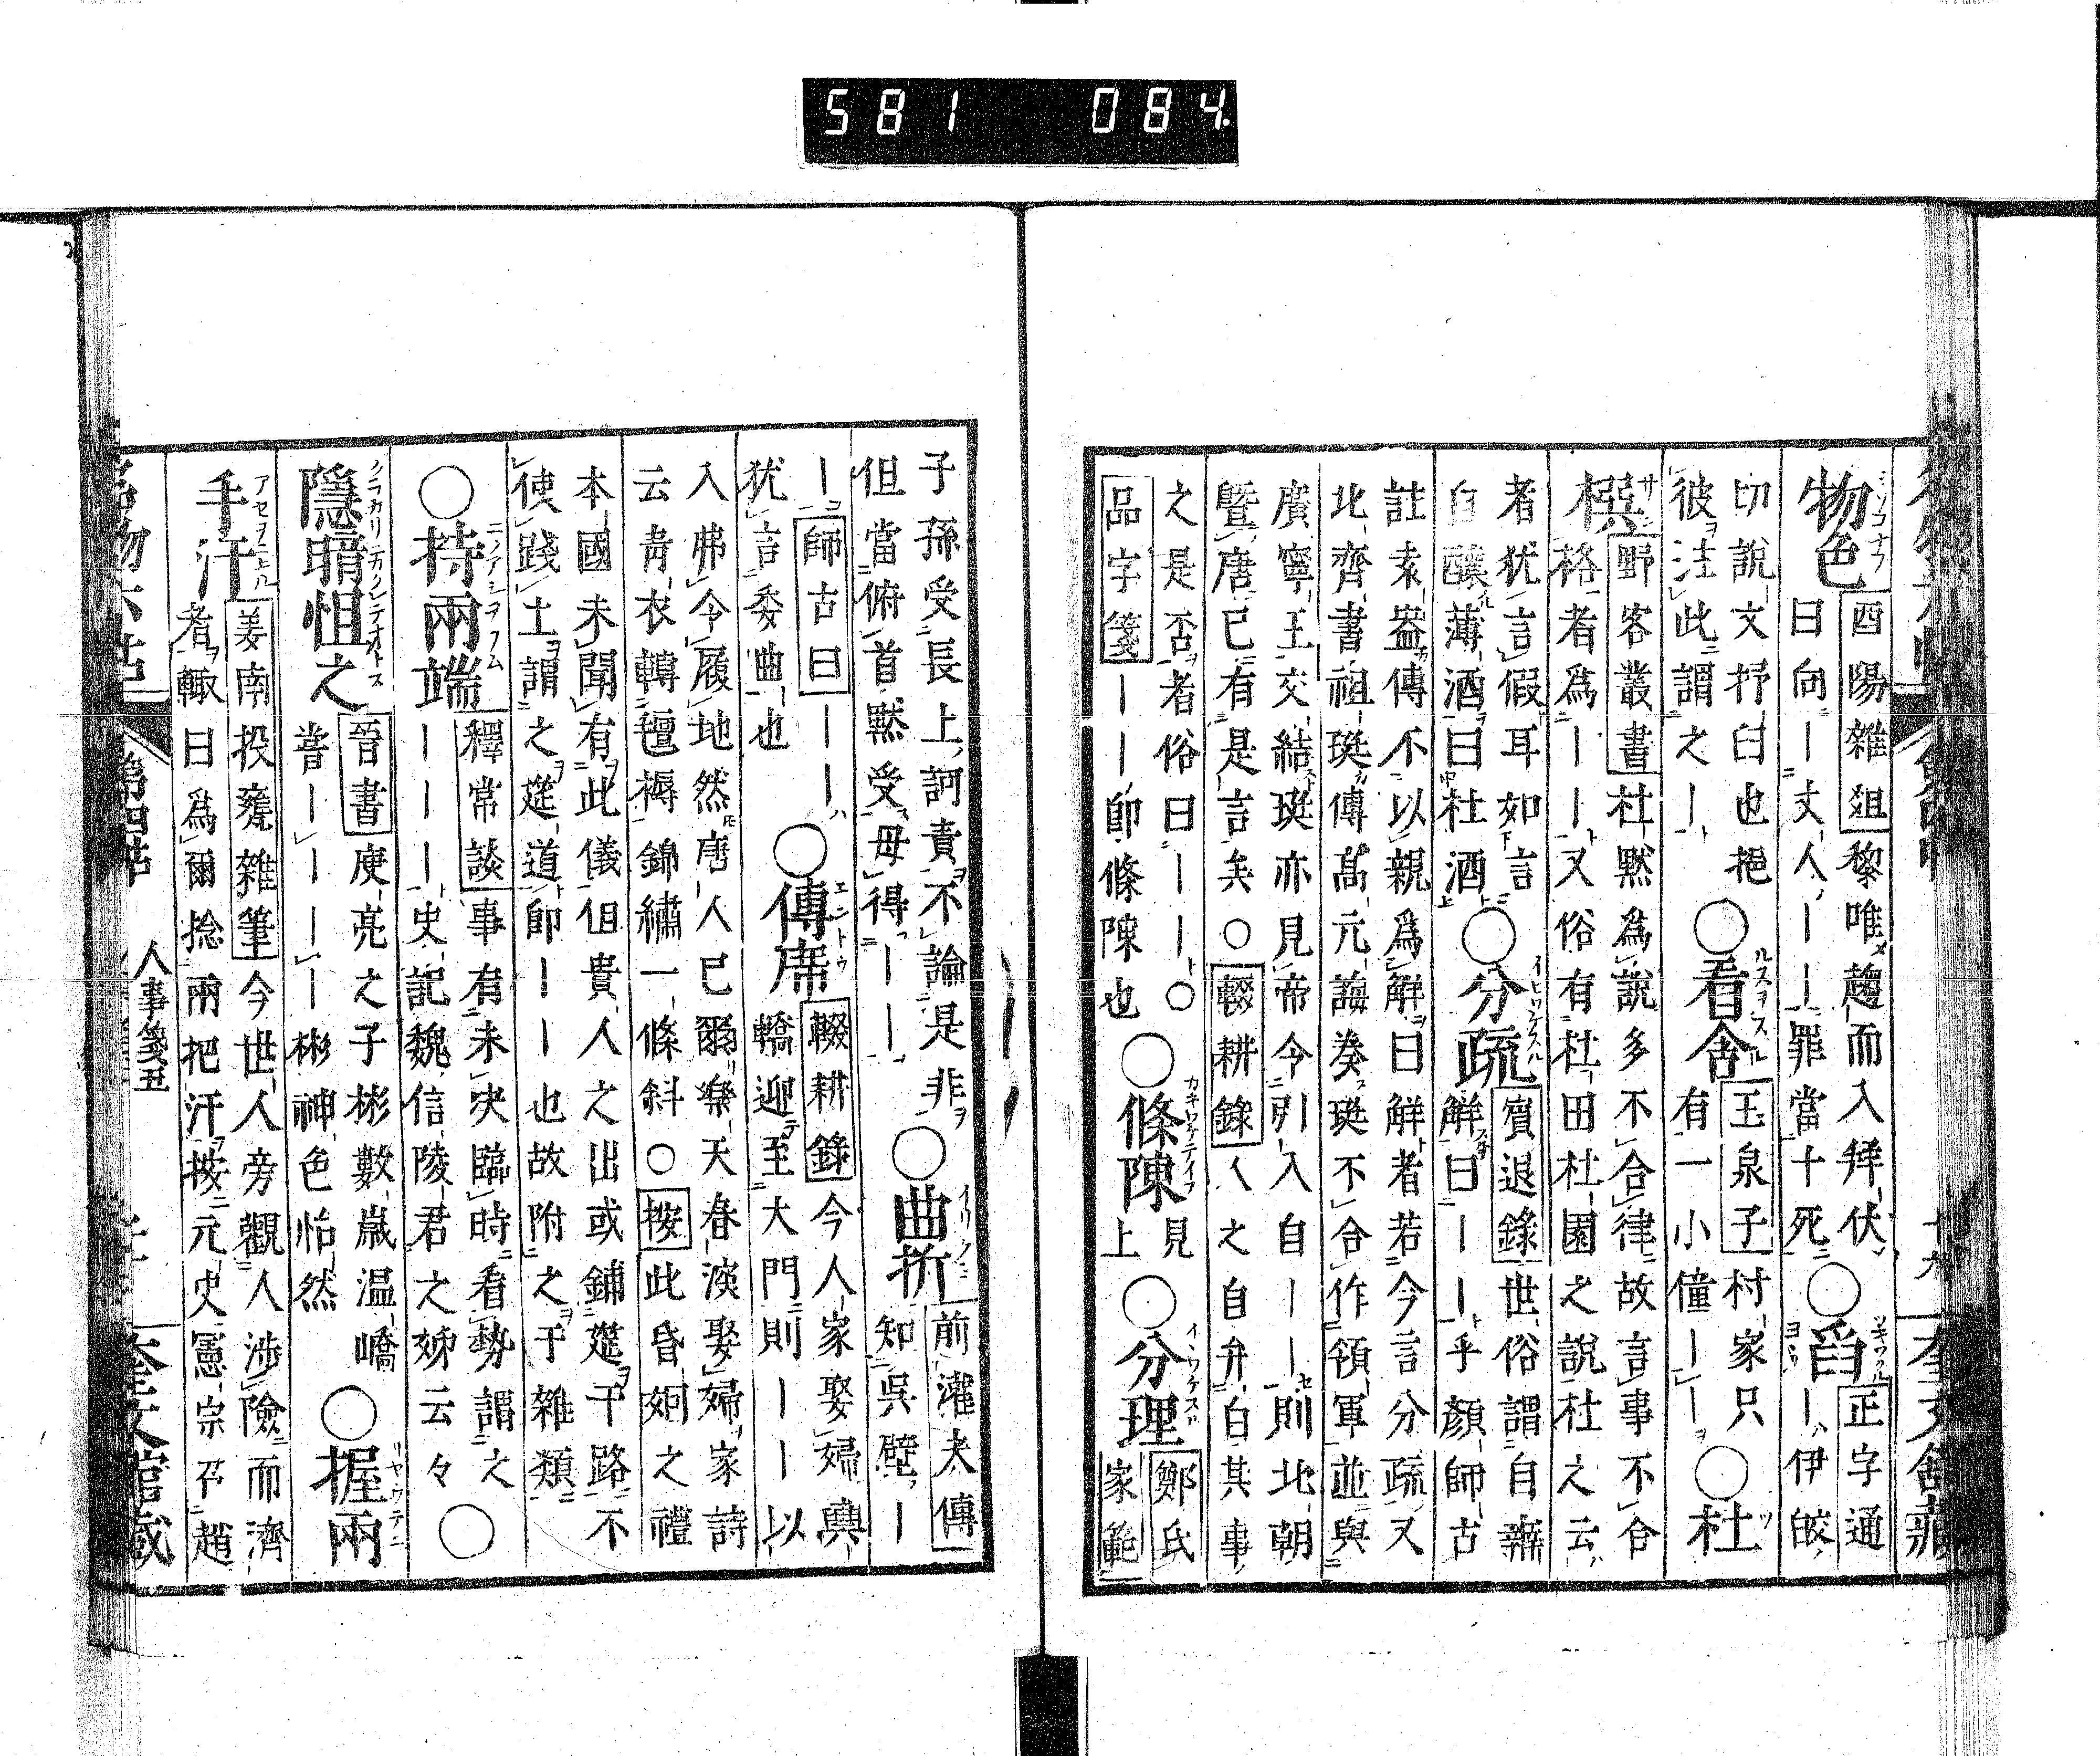 581 084
物色 酉陽雜俎 黎唯趨而入拜伏
曰向｜丈人｜｜罪當十死 ○舀 正字通
｜伊皎
切說文抒臼也挹
彼注此謂之｜ ○看舍 玉泉子 村家只
有一小僮｜｜ ○杜
撰 野客叢書 杜默爲說多不合律故言事不合
格者爲｜｜又俗有杜田杜園之說杜之云
者猶言假耳如言
自釀薄酒曰杜酒 ○分疏 賓退錄 世俗謂自辨
解曰｜｜乎顏師古
註袁盎傳不以親爲解曰解者若今言分疏又
北齊書祖珽傳高元海奏珽不合作領軍並與
廣寧王交結珽亦見帝令引入自｜｜則北朝
曁唐已有是言矣○輟耕錄 人之自弁白其事
之是否者俗曰｜｜○
品字箋 ｜｜卽條陳也 ○條陳 見
上 ○分理 鄭氏
家範
子孫受長上訶責不論是非
但當俯首默受毋得｜｜ ○曲折 前灌夫傳
知吳壁｜
｜ 師古曰 ｜｜
猶言委曲也 ○傳席 輟耕錄 今人家娶婦輿
轎迎至大門則｜｜以
入弗令履地然唐人已爾樂天春深娶婦家詩
云靑衣轉氊褥錦繡一條斜○按 此昏姻之禮
本國未聞有此儀但貴人之出或鋪筵于路不
使踐土謂之筵道卽｜｜也故附之于雜類
○持兩端 釋常談 事有未決臨時看勢謂之
｜｜｜史記魏信陵君之姊云々 ○
隱暗怛之 晉書 庾亮之子彬數歲温嶠
嘗｜｜｜｜彬神色恬然 ○握兩
手汗 姜南投甕雜筆 今世人旁觀人涉險而濟
者輙曰爲爾捻兩把汗按元史憲宗召趙
人事箋五